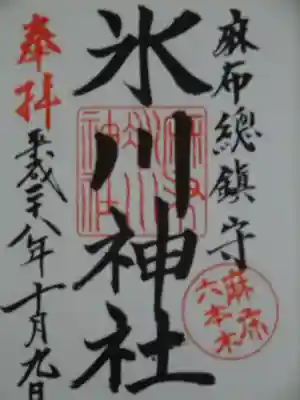 麻布總鎮守
氷川神社
奉拝
平成二十八年十月九日
麻布
六本木